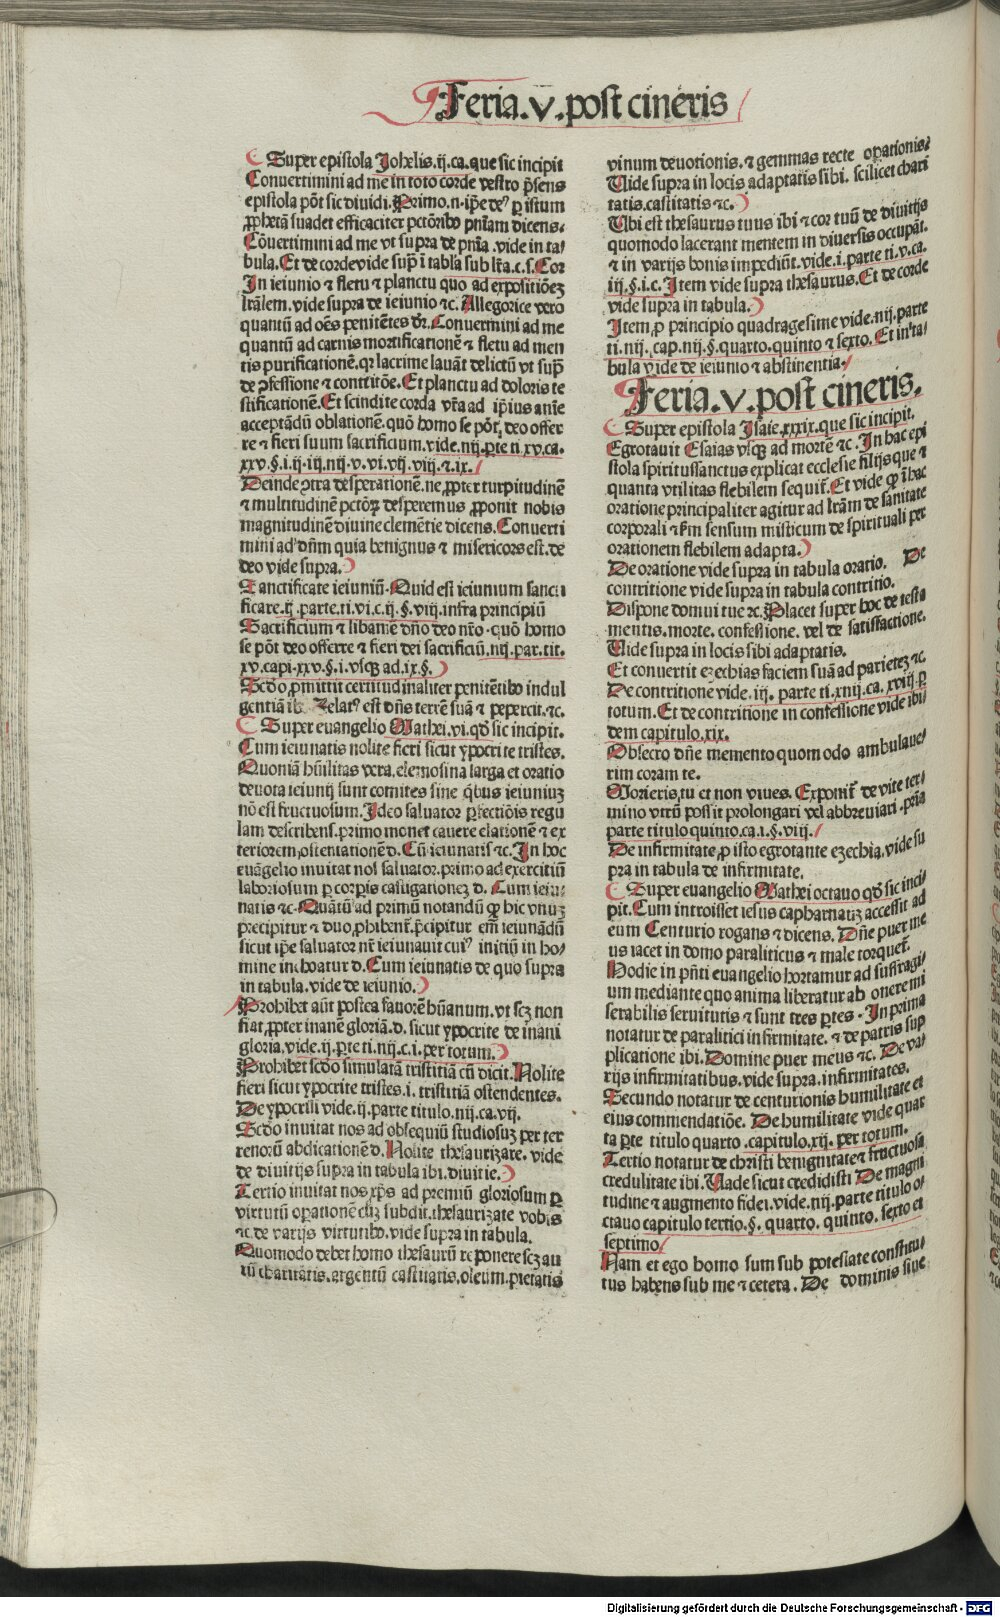 Feria.v.post cineris
Super epistola Johelis.ij.ca.que sic incipit
Conuertimini ad me in toto corde vestro p̄sens
epistola pōt sic diuidi. Primo.n.ip̄e deꝰ ꝑ istum
ꝓphetā suadet efficaciter pctōribꝰ pn̄iam dicens.
Cōuertimini ad me vt supra de pn̄ia .vide in ta/
bula. Et de corde vide supͥ ī tabla sub lr̄a.c.s.Cor
In ieiunio ⁊ fletu ⁊ planctu quo ad expositiōeꝫ
lr̄alem. vide supra de ieiunio ⁊c. Allegorice vero
quantū ad oēs penitētes dr̄. Conuertimini ad me
quantū ad carnis mortificationē ⁊ fletu ad men
tis purificationē.qꝛ lacrime lauāt delictū vt supͣ
de ꝯfessione ⁊ contritōe. Et planctu ad doloris te
stificationē. Et scindite corda vr̄a ad ip̄ius anīe
acceptādū oblationē. quō homo se pōt deo offer
re ⁊ fieri suum sacrificium. vide.nij.ꝑte ti.xv.ca.
xxv.§.i.ij.iij.nij.v.vi.vij.viij.⁊.ix.
Deinde ꝯtra desperationē.ne ꝓpter turpitudinē
⁊ multitudinē pctōꝝ desperemus ꝓponit nobis
magnitudinē diuine clemētie dicens. Conuerti
mini ad dn̄m quia benignus ⁊ misericors est. de
deo vide supra.
Sanctificate ieiuniū. Quid est ieiunium sancti
ficare.ij.parte.ti.vi.c.ij.§.viij.infra principiū
Sacrificium ⁊ libamē dn̄o deo nr̄o. quō homo
se pōt deo offerre ⁊ fieri dei sacrificiū.nij.par.tit.
xv.capi.xxv.§.i.vsqꝫ ad.ix.§.
Scd̄o ꝓmittit certitudinaliter penitētibꝰ indul
gentiā ib. Zelatꝰ est dn̄s terrē suā ⁊ pepercit.⁊c.
Super euangelio Mathei.vi.qd̄ sic incipit.
Cum ieiunatis nolite fieri sicut ypocrite tristes.
Quoniā hūilitas vera.elemosina larga et oratio
deuota ieiunij sunt comites sine q̄bus ieiuniuꝫ
nō est fructuosum. Ideo saluator ꝑfectiōis regu
lam describens. primo monet cauere elationē ⁊ ex
teriorem ostentationē d. Cū ieiunatis ⁊c. In hoc
euāgelio inuitat nos saluator. primo ad exercitiū
laboriosum ꝑ corpis castigationeꝫ d. Cum ieiu/
natis ⁊c. Quātū ad primū notandū qꝙ hic vnuꝫ
precipitur ⁊ duo ꝓhibent̄. p̄cipitur em̄ ieiunādū
sicut ip̄e saluator nr̄ ieiunauit cuiꝰ initiū in ho/
mine inchoatur d. Cum ieiunatis de quo supra
in tabula. vide de ieiunio.
Prohibet aūt postea fauorē hūanum.vt scꝫ non
fiat ꝓpter inanē gloriā.d. sicut ypocrite de inani
gloria.vide.ij.ꝑte ti.nij.c.i.per totum.
Prohibet scd̄o simulatā tristitiā cū dicit. Nolite
fieri sicut ypocrite tristes.i. tristitiā ostendentes.
De ypocrisi vide.ij.parte titulo.nij.ca.vij.
Scd̄o inuitat nos ad obsequiū studiosuꝫ per ter
renorū abdicationē d. Nolite thesaurizare. vide
de diuitijs supra in tabula ibi.diuitie.
Tertio inuitat nos xp̄s ad premiū gloriosum ꝑ
virtutū oꝑationē cū subdit.thesaurizate vobis
⁊c.de varijs virtutibꝰ.vide supra in tabula.
Quomodo debet homo thesaurū reponere scꝫ au
rū charitatis.argentū castitatis.oleum.pietatis
vinum deuotionis.⁊ gemmas recte oꝑationis.
Vide supra in locis adaptatis sibi. scilicet chari
tatis.castitatis ⁊c.
Ubi est thesaurus tuus ibi ⁊ cor tuū de diuitijs
quomodo lacerant mentem in diuersis occupāt.
⁊ in varijs bonis impediūt.vide.i.parte ti.v.ca.
iij.§.i.c. Item vide supra thesaurus. Et de corde
vide supra in tabula.
Item ꝓ principio quadragesime vide.nij.parte
ti.nij.cap.nij.§.quarto.quinto ⁊ sexto. Et in ta/
bula vide de ieiunio ⁊ abstinentia.
Feria.v.post cineris.
Super epistola Isaie.xxxix.que sic incipit.
Egrotauit Esaias vsqꝫ ad mortē ⁊c. In hac epi
stola spiritussanctus explicat ecclesie filijs que ⁊
quanta vtilitas flebilem sequit̄. Et vide qꝙ ī hac
oratione principaliter agitur ad lr̄am de sanitate
corporali ⁊ ẜm sensum misticum de spirituali per
orationem flebilem adapta.
De oratione vide supra in tabula oratio. De
contritione vide supra in tabula contritio.
Dispone domui tue ⁊c. Placet super hoc de testa
mentis.morte. confessione. vel de satisfactione.
Vide supra in locis sibi adaptatis.
Et conuertit ezechias faciem suā ad parieteꝫ ⁊c.
De contritione vide.iij. parte ti.xnij.ca.xviij.ꝑ
totum. Et de contritione in confessione vide ibi
dem capitulo.xix.
Obsecro dn̄e memento quomodo ambulaue/
rim coram te.
Morieris.tu et non viues. Exponit̄ de vite ter/
mino vtrū possit prolongari vel abbreuiari.pria
parte titulo quinto.ca.i.§.viij.
De infirmitate ꝓ isto egrotante ezechia. vide su
pra in tabula de infirmitate.
Super euangelio Mathei octauo qd̄ sic inci
pit. Cum introisset iesus capharnauꝫ accessit ad
eum Centurio rogans ⁊ dicens. Dn̄e puer me
us iacet in domo paraliticus ⁊ male torquet̄.
Hodie in pn̄ti euangelio hortamur ad suffragi/
um mediante quo anima liberatur ab onere mi
serabilis seruitutis ⁊ sunt tres ꝑtes. In prima
notatur de paralitici infirmitate. ⁊ de patris sup
plicatione ibi. Domine puer meus ⁊c. De va/
rijs infirmitatibus.vide supra.infirmitates.
Secundo notatur de centurionis humilitate et
eius commendatiōe. De humilitate vide quar
ta ꝑte titulo quarto .capitulo.xij. per totum.
Tertio notatur de christi benignitate ⁊ fructuosa
credulitate ibi. Vade sicut credidisti De magni
tudine ⁊ augmento fidei.vide.nij.parte titulo o/
ctauo capitulo tertio.§. quarto. quinto. sexto et
septimo
Nam et ego homo sum sub potestate constitu/
tus habens sub me ⁊ cetera. De dominis siue
Digitalisierung gefördert durch die Deutsche Forschungsgemeinschaft - DFG